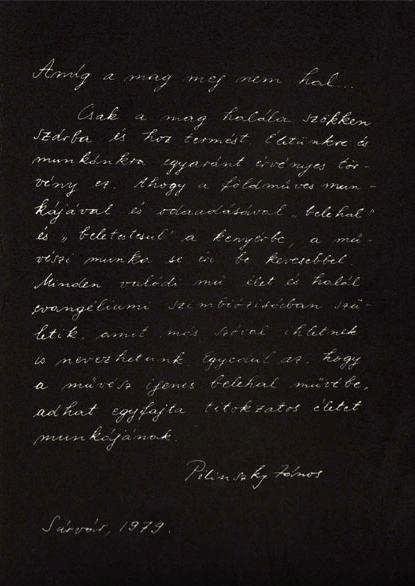 Amíg a mag meg nem hal...
Csak a mag halála szökken
szárba és hoz termést. Életünkre és
munkánkra egyaránt érvényes tör-
vény ez. Ahogy a földműves mun-
kájával és odaadásával „belehal"
és „beletestesül" a kenyérbe, a mű-
vészi munka se éri be kevesebbel.
Minden valódi mű élet és halál
evangéliumi szimbiózisában szü-
letik, amit más szóval ihletnek
is nevezhetünk. Egyszóval az, hogy
a művész igenis belehal művébe,
adhat egyfajta titokzatos életet
munkájának.
Pilinszky János
Sárvár, 1979.